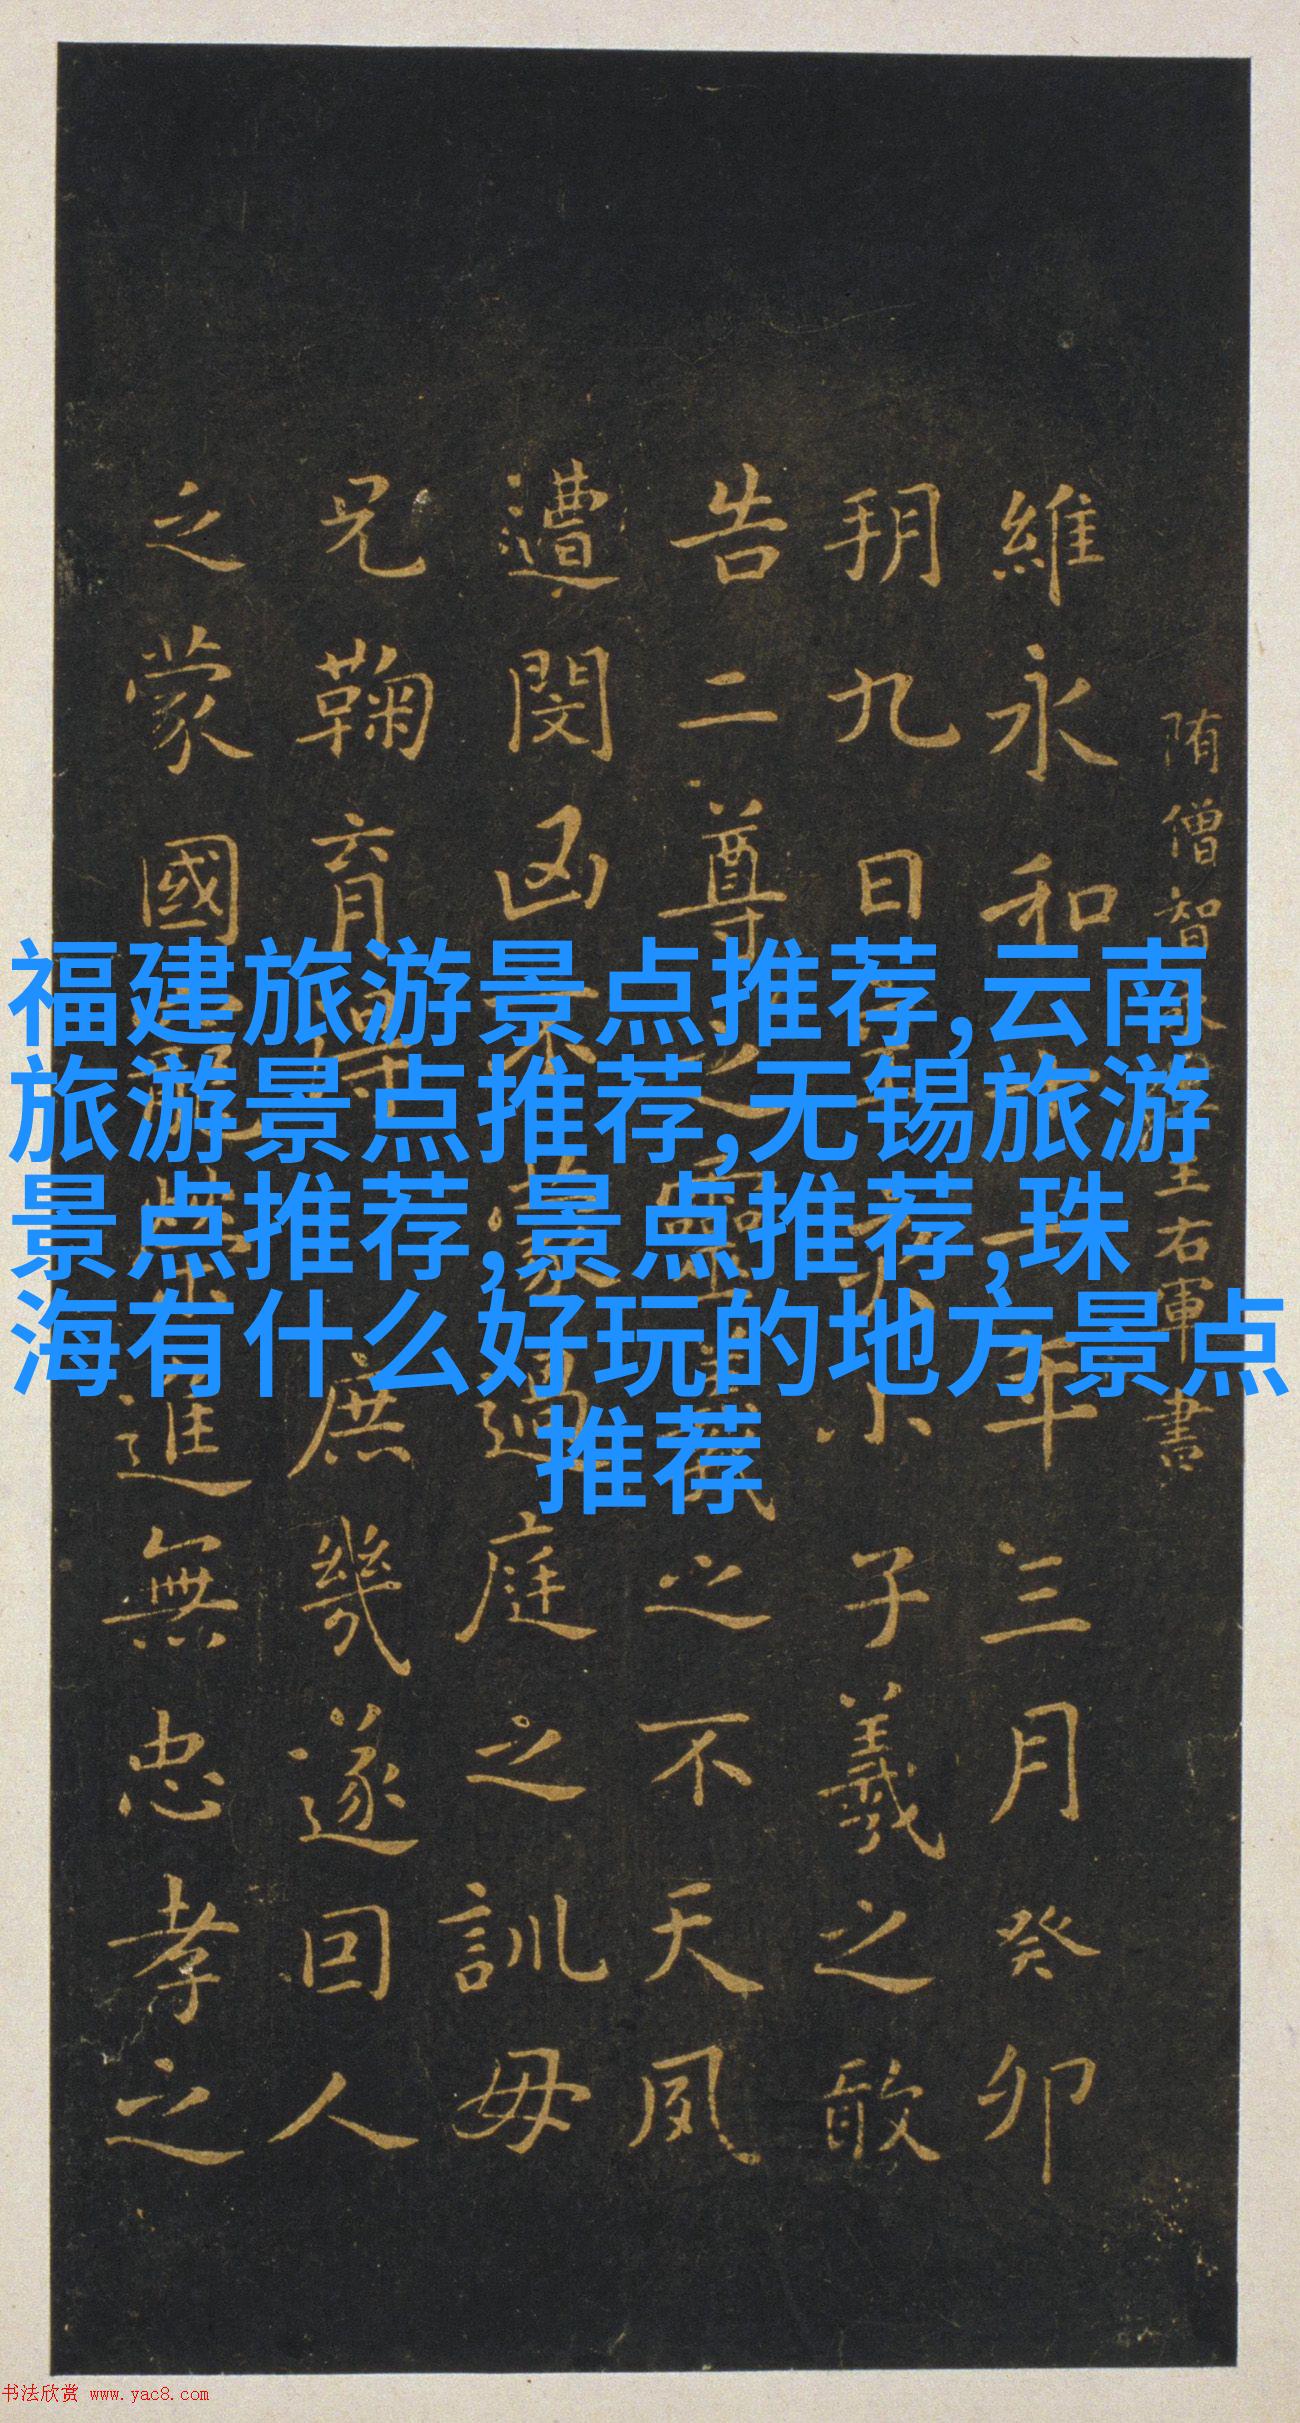 福建旅游景点推荐,云南
旅游景点推荐,无锡旅游
景点推荐,景点推荐,珠
海有什么好玩的地方景点
推荐
隋僧智王右軍書
維永和十一年三月癸卯
朔九日小子羲之敢
告二尊之靈羲之不天夙
遭閔凶不蒙過庭之訓母
兄鞠育得庶幾遂因人
之蒙國寵榮進無忠孝之
书法欣赏 www.yac8.com